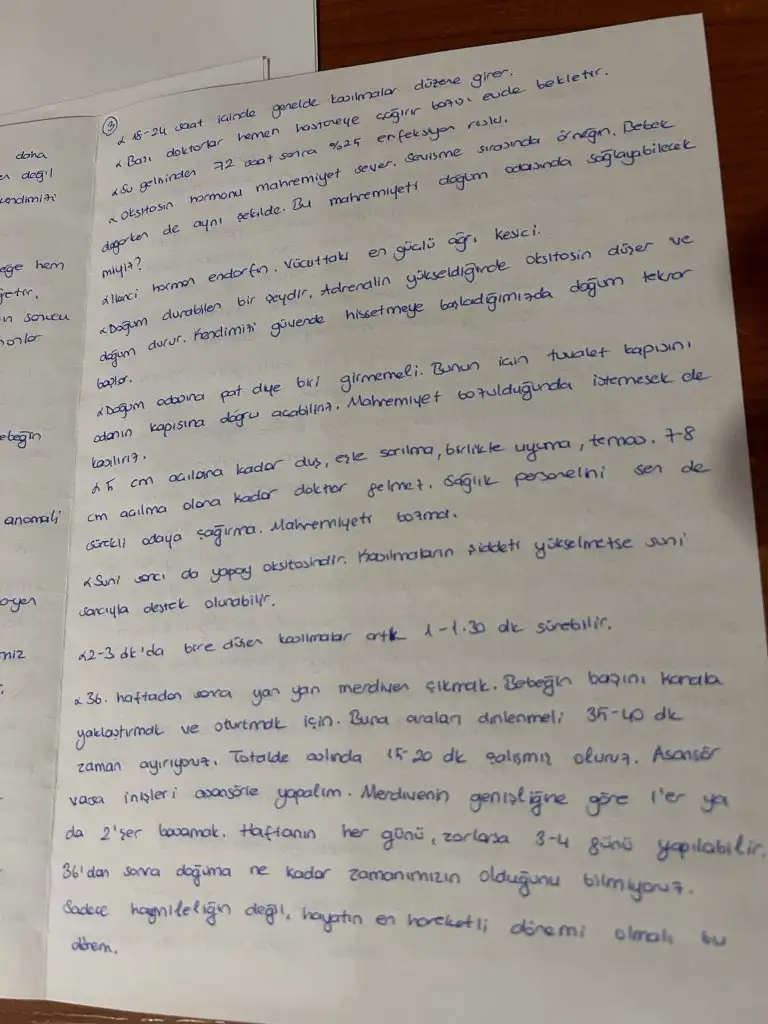 daha
değil
kendimizi
eğe hem
in sonucu
ebeğin
anomali
③
α 18-24 saat içinde genelde kasılmalar düzene girer.
α Bazı doktorlar hemen hastaneye çağırır bazısı evde bekletir.
α Su gelsinden 72 saat sonra %25 enfeksiyon riski.
α Oksitosin hormonu mahremiyet sever. Sevişme sırasında örneğin. Bebek
doğarken de aynı şekilde. Bu mahremiyeti doğum odasında sağlayabilecek
miyiz?
α İkinci hormon endorfin. Vücuttaki en güçlü ağrı kesici.
α Doğum durabilen bir şeydir. Adrenalin yükseldiğinde oksitosin düşer ve
doğum durur. Kendimizi güvende hissetmeye başladığımızda doğum tekrar
başlar.
α Doğum odasına pat diye biri girmemeli. Bunun için tuvalet kapısını
odanın kapısına doğru açabiliriz. Mahremiyet bozulduğunda istemesek de
kasılırız.
α 5 cm açılana kadar duş, eşle sarılma, birlikte uyuma, temas. 7-8
cm açılma olana kadar doktor gelmez. Sağlık personelini sen de
sürekli odaya çağırma. Mahremiyeti bozma.
α Suni sancı da yapay oksitosindir. Kasılmaların şiddeti yükselmezse suni
sancıyla destek olunabilir.
α 2-3 dk'da bire düşen kasılmalar artk 1-1.30 dk sürebilir.
α 36. haftadan sonra yan yan merdiven çıkmak. Bebeğin başını kanala
yaklaştırmak ve oturtmak için. Buna aralar dinlenmeli 35-40 dk
zaman ayırıyoruz. Totalde aslında 15-20 dk çalışmış oluruz. Asansör
varsa inişleri asansörle yapalım. Merdivenin genişliğine göre 1'er ya
da 2'şer basamak. Haftanın her günü, zorlarsa 3-4 günü yapılabilir.
36'dan sonra doğuma ne kadar zamanımızın olduğunu bilmiyoruz.
Sadece hamileliğin değil, hayatın en hareketli dönemi olmalı bu
dönem.